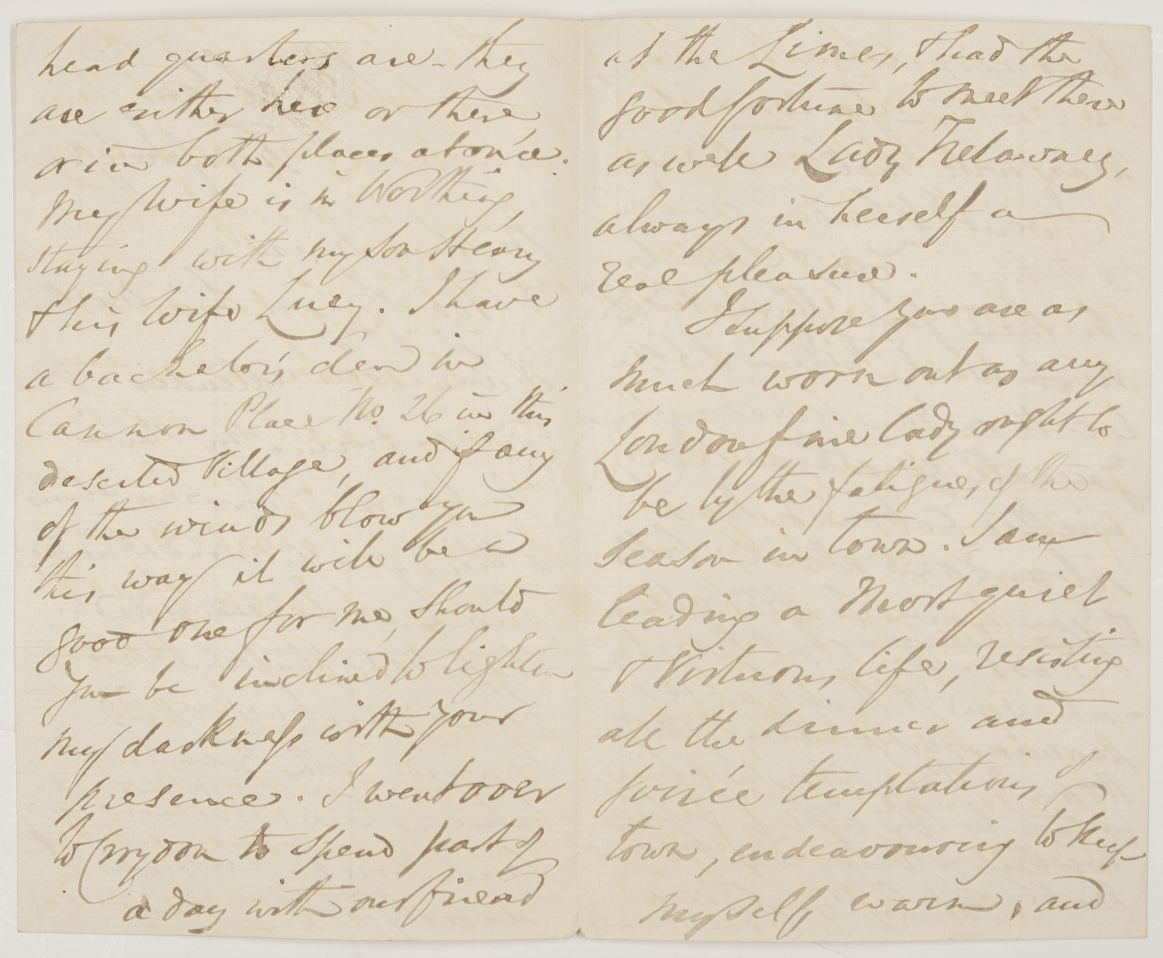 head quarters are - they
are either here or there
or in both places at once.
My Wife is in Worthing,
staying with my son Henry
& his wife Lucy. I have
a bachelor's den in
Cannon Place No. 26 in this
deserted Village, and if any
of the winds blow you
this way it will be a
good one for me, should
you be inclined to lighten
my darkness with your
presence. I went over
to Croydon to spend part of
a day with our friend
at the Limes, & had the
good fortune to meet there
as well Lady Trelawney,
always in herself a
real pleasure.
I suppose you are as
much worn out as any
London fine lady ought to
be by the fatigues of the
season in town. I am
leading a most quiet
& virtuous life, resisting
all the dinner and
soirée temptations of
town, endeavouring to keep
myself warm, and